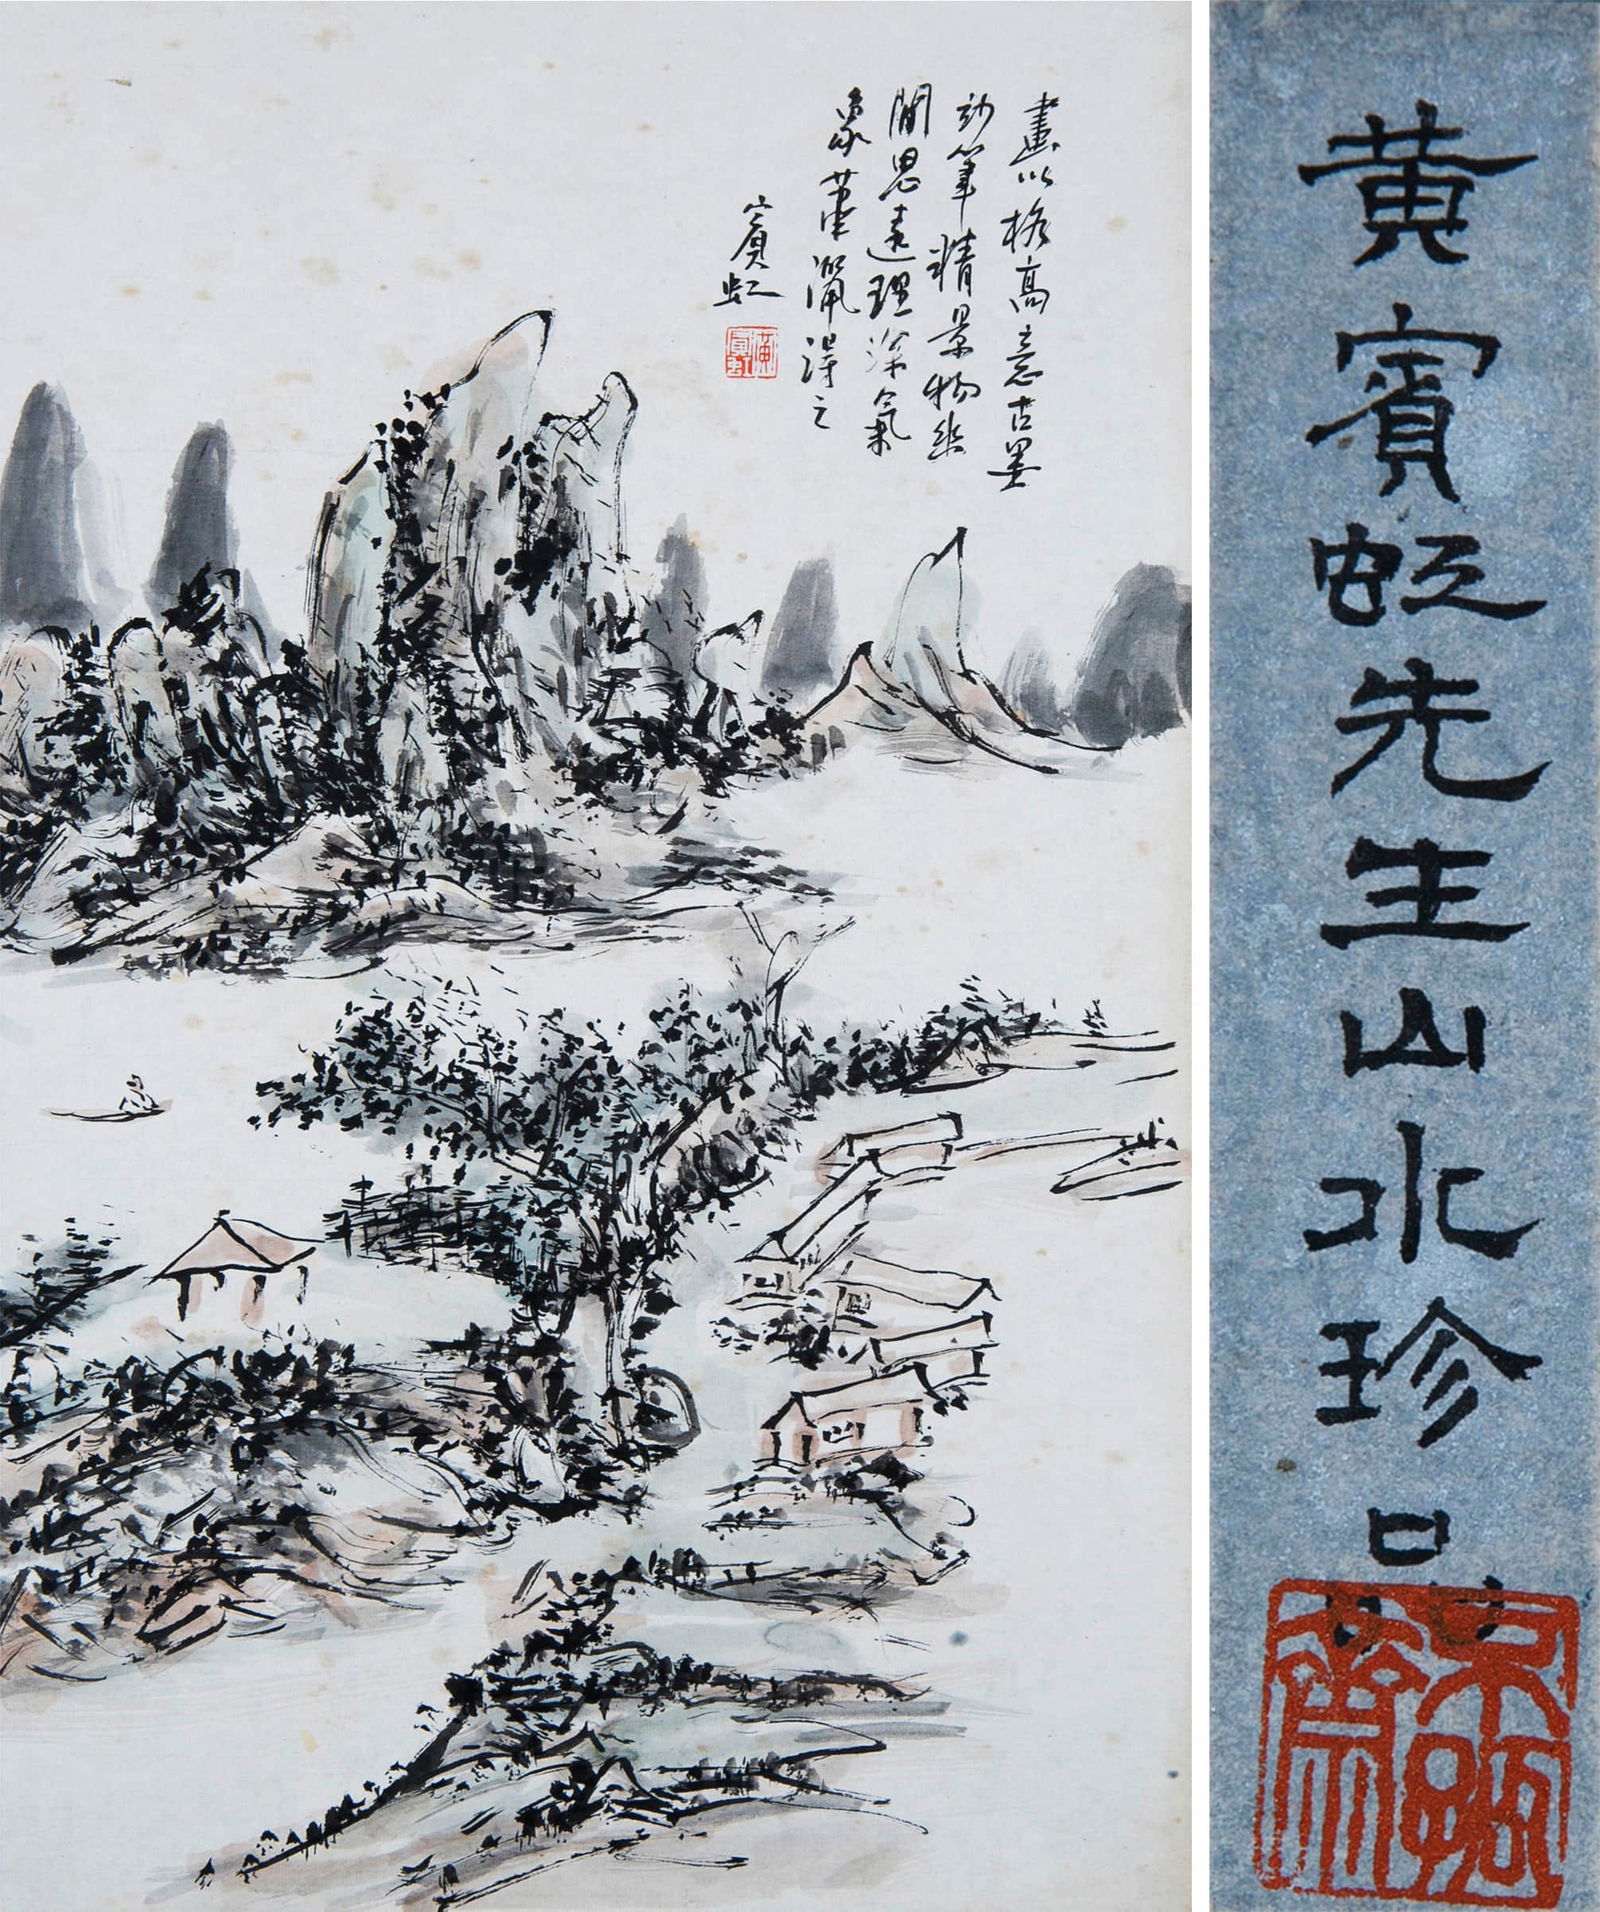 畫以格高意古墨
妙筆精景物幽
閒思遠理深氣
象蕭灑得之
賓虹
黃賓虹
黃賓虹先生山水珍品